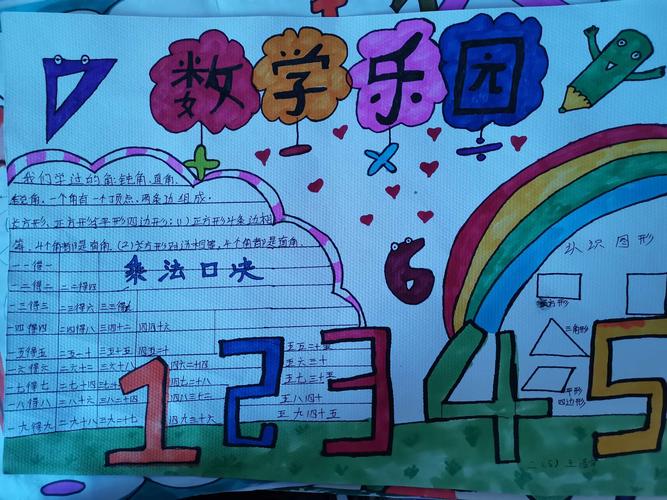 数学乐园
+ − × ÷
我们学过的角:钝角、直角、
锐角。一个角有一个顶点,两条边组成。
长方形、正方形
(1)正方形4条边相
等,4个角都是直角。(2)长方形对边相等,4个角都是直角。
乘法口决
一一得一
一二得二 二二得四
一三得三 二三得六 三三得九
一四得四 二四得八 三四十二 四四十六
一五得五 二五一十 三五十五 四五二十 五五二十五
一六得六 二六十二 三六十八 四六二十四 五六三十
一七得七 二七十四 四七二十八 五七三十五
一八得八 二八十六 三八二十四 五八四十
一九得九 二九十八 三九二十七 四九三十六 五九四十五
6
认识图形
长方形
三角形
平行
四边形
1 2 3 4 5
二(5) 王